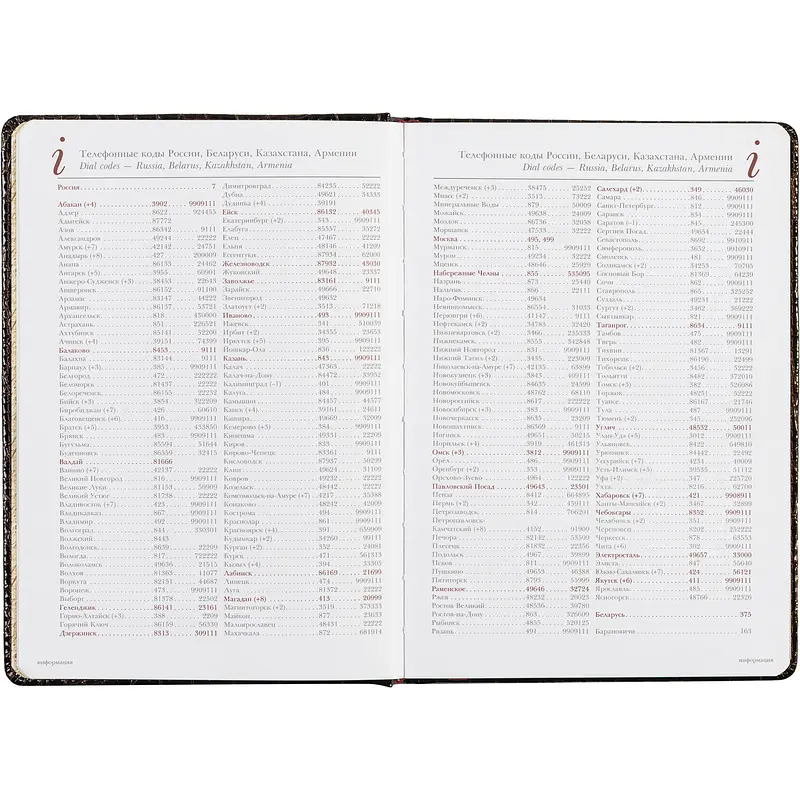 i
Телефонные коды России, Беларуси, Казахстана, Армении
Dial codes — Russia, Belarus, Kazakhstan, Armenia
Россия 7
Абакан (+4) 3902 9909111
Адлер 8622 924455
Адыгейск 87772
Азов 86342 9111
Александров 49244 22222
Амурск (+7) 42142 24751
Анадырь (+8) 427 200009
Анапа 86133 24462
Ангарск (+5) 3955 60901
Анжеро-Судженск (+3) 38453 22643
Апшеронск 86152 91100
Арзамас 83147 44222
Армавир 86137 53721
Архангельск 818 430000
Астрахань 851 226521
Ахтубинск 85141 52200
Ачинск (+4) 39151 74399
Балаково 8453 9111
Балахна 83144 9111
Барнаул (+3) 385 9909111
Белгород 472 222222
Белокуриха 22222
Белореченск 86155 22232
Бийск (+3) 3854 322209
Биробиджан (+7) 426 60610
Благовещенск (+6) 416 9909111
Братск (+5) 3953 433850
Брянск 483 9909111
Бугульма 85594 51644
Буденновск 86559 32415
Валдай 81666
Ванино (+7) 42137 22222
Великий Новгород 816 9909111
Великие Луки 81153 50909
Великий Устюг 81738 22222
Владивосток (+7) 423 9909111
Владикавказ 867 9909111
Владимир 492 9909111
Волгоград 844 330301
Волжский 8443
Волгодонск 8639 22209
Вологда 817 722222
Волоколамск 49636 21515
Волхов 81363 11077
Воркута 82151 44687
Воронеж 473 9909111
Выборг 81378 22502
Геленджик 86141 23161
Горно-Алтайск (+3) 388 2209
Горячий Ключ 86159 56330
Дзержинск 8313 309111
Димитровград 84235 52222
Дубна 49621 54333
Дудинка (+4) 39191
Ейск 86132 40345
Екатеринбург (+2) 343 9909111
Елабуга 85557 35272
Елец 47467 22222
Ельня 48146 41209
Ессентуки 87934 62000
Железноводск 87932 43030
Жуковский 49648 23337
Заволжье 83161 9111
Зарайск 49666 22710
Звенигород 49632
Златоуст (+2) 3513 71218
Иваново 493 9909111
Ижевск 341 510039
Ирбит (+2) 34355 23653
Иркутск (+5) 395 9909111
Йошкар-Ола 836 122222
Казань 843 9909111
Калач 47363 22222
Калач-на-Дону 84472 33952
Калининград (–1) 401 9909111
Калуга 484 9909111
Камышин 84457 44577
Канск (+4) 39161 24611
Кашира 49669 52009
Кемерово (+3) 384 9909111
Кинешма 49331 22209
Киров 833 9909111
Кирово-Чепецк 83361 9111
Кисловодск 87937 50299
Клин 49624 31109
Ковров 49232 22222
Козельск 48442 22222
Комсомольск-на-Амуре (+7) 4217 35388
Конаково 48242 42009
Кострома 494 9909111
Краснодар 861 9909111
Красноярск (+4) 391 659909
Кудымкар (+2) 34260 99111
Курган (+2) 352 24081
Курск 471 561319
Кызыл (+4) 394 33305
Лабинск 86169 21699
Липецк 474 9909111
Луга 81372 22222
Магадан (+8) 413 20999
Магнитогорск (+2) 3519 373333
Майкоп 877 23633
Малоярославец 48431 22222
Махачкала 872 681914
информация
i
Телефонные коды России, Беларуси, Казахстана, Армении
Dial codes — Russia, Belarus, Kazakhstan, Armenia
Междуреченск (+3) 38475 25252
Миасс (+2) 3513 73222
Минеральные Воды 879 50009
Можайск 49638 24009
Моздок 86736 32058
Моршанск 47533 22222
Москва 495, 499
Мурманск 815 9909111
Муром 49234 32222
Мценск 48646 25929
Набережные Челны 855 535095
Назрань 873 25440
Нальчик 866 22111
Наро-Фоминск 49634
Невинномысск 86554 31033
Нерюнгри (+6) 41147 9111
Нефтекамск (+2) 34783 32420
Нижневартовск (+2) 3466 235333
Нижнекамск 8555 342848
Нижний Новгород 831 9909111
Нижний Тагил (+2) 3435 223009
Николаевск-на-Амуре (+7) 42135 63899
Новокузнецк (+3) 3843 409111
Новокуйбышевск 84635 24599
Новомосковск 48762 68110
Новороссийск 8617 222222
Новосибирск (+3) 383 9909111
Новочеркасск 8635 23209
Новошахтинск 86369 9111
Ногинск 49651 50215
Норильск (+4) 3919 461313
Омск (+3) 3812 9909111
Орёл 486 9909111
Оренбург (+2) 353 9909111
Орехово-Зуево 4964 122222
Павловский Посад 49643 23501
Пенза 8412 664895
Пермь (+2) 342 439111
Петрозаводск 814 766201
Петропавловск-
Камчатский (+8) 4152 91900
Печора 82142 53509
Плесецк 81832 22256
Подольск 4967 39899
Псков 811 9909111
Пушкино 49653 46388
Пятигорск 8793 55999
Раменское 49646 32724
Ржев 48232 20023
Ростов Великий 48536 30780
Ростов-на-Дону 863 326609
Рыбинск 4855 520125
Рязань 491 9909111
Салехард (+2) 349 46030
Самара 846 9909111
Санкт-Петербург 812 9909111
Саранск 834 9909111
Саратов (–1) 845 245300
Сергиев Посад 49654 22444
Севастополь 8692 9910911
Симферополь 3652 9910971
Смоленск 481 9909111
Соликамск (+2) 34253 70705
Сосновый Бор 81369 64239
Сочи 862 9909111
Ставрополь 865 325252
Суздаль 49231 21222
Сургут (+2) 3462 369222
Сыктывкар 821 9909111
Таганрог 8634 9111
Тамбов 475 9909111
Тверь 482 9909111
Тихвин 81367 13291
Тихорецк 86196 22499
Тобольск (+2) 3456 52222
Тольятти 8482 372010
Томск (+3) 382 326086
Торжок 48251 52222
Туапсе 86167 21746
Тула 487 9909111
Тюмень (+2) 345 252096
Углич 48532 50011
Улан-Удэ (+5) 3012 9909111
Ульяновск 8422 649810
Урюпинск 84442 29292
Уссурийск (+7) 4234 40009
Усть-Илимск (+5) 39535 51112
Уфа (+2) 347 225720
Ухта 8216 62700
Хабаровск (+7) 421 9908911
Ханты-Мансийск (+2) 3467 32899
Чебоксары 8352 9909111
Челябинск (+2) 351 9909111
Череповец 8202 252222
Черкесск 878 63553
Чита (+6) 302 9909111
Электросталь 49657 33000
Элиста 847 55640
Южно-Сахалинск (+7) 424 56121
Якутск (+6) 411 9909111
Ярославль 485 9909111
Ясногорск 48766 22326
Беларусь 375
Барановичи 163
информация